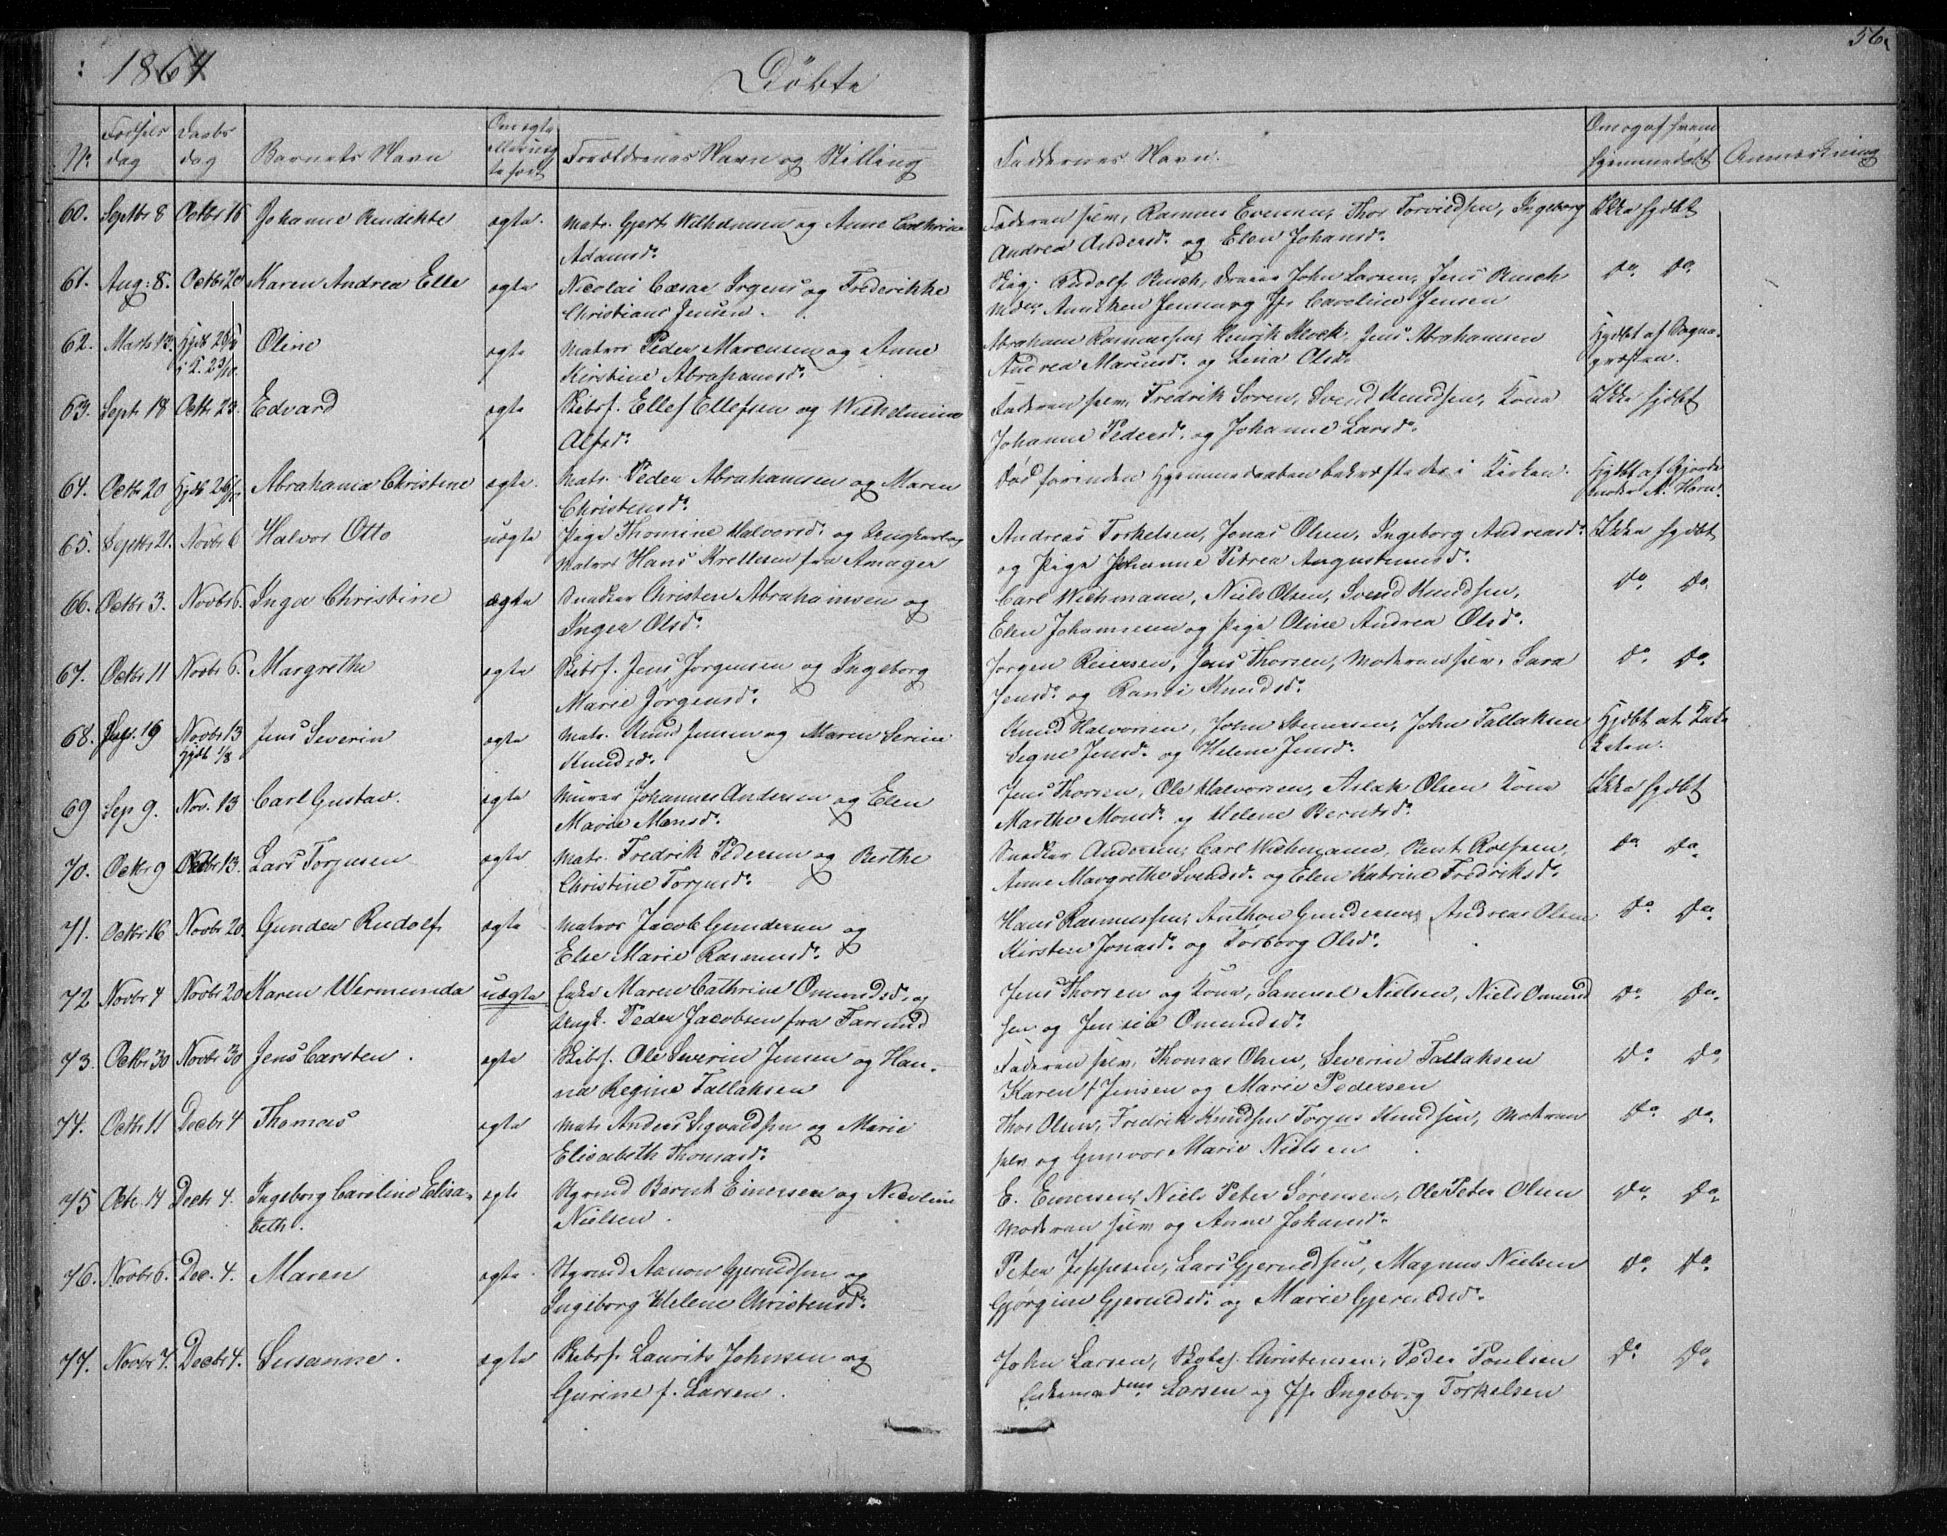 1864
Døbte
56.
No. Fødsels dag Daabs dag Barnets Navn Om ægte eller uægte født Forældrenes Navn og Stilling Faddernes Navn. Om og af hvem hjemmedøbt Anmærkning
60. Septbr 8 Octbr 16 Johanne Bendikte ægte. Matr. Gjert Wilhelmsen og Anne Cathrine Faderen selv, Rasmus Evensen, Thor Torvildsen, Ingeborg Ikke hjdbt
Adamsd. Andrea Andersd. og Elen Johansd.
61. Aug. 8. Octbr 20 Karen Andrea Elle ægte Nicolai Cæsar Irgens og Frederikke Rudolf Busch, John Larsen, Jens Busch do. do.
Christiane Jensen. Anniken Jensen og Jfr Caroline Jensen
62. Marts 13. Hjdbt i K. 23/10. Oline ægte Matros Peder Marensen og Anne Abraham Rasmussen, Henrik Klock, Jens Abrahamsen Hjdbt af Sogne-
Kirstine Abrahamsd. Andrea Mariusd. og Lena Olsd. præsten.
63. Sept 18 Octbr 23. Edvard ægte Skibsf. Ellef Ellefsen og Wilhelmine Faderen selv, Fredrik Søren, Svend Knudsen, Kone Ikke hjdbt
Alfsd. Johanne Pedersd. og Johanne Larsd.
64. Octbr 20 Hjdbt Abrahama Christine ægte. Matr. Peder Abrahamsen og Maren Død forinden Hjemmedaaben bekræftedes i Kirken. Hjdbt af Gjorde-
Christensd. moder A. Horn.
65. Septbr 21. Novbr 6 Halvor Otto uægte Pige Thomine Halvorsd. og Ungkarl Andreas Torkelsen, Jonas Olsen, Ingeborg Andreasd. Ikke hjdbt
Matros Hans Krellesen fra Amager og Pige Johanne Petrea Augustinusd.
66. Octbr 3. Novbr 6. Inga Christine ægte Snedker Christen Abrahamsen og Carl Wichmann, Niels Olsen, Svend Knudsen, do. do.
Inger Olsd. Elen Johannesen og Pige Oline Andrea Olsd.
67. Octbr 11 Novbr 6. Margrethe ægte Skibsf. Jens Jørgensen og Ingeborg Jørgen Reiersen, Jens Thorsen, Moderen selv, Sara do. do.
Marie Jørgensd. Jensd. og Randi Knudsd.
68. 19 Novbr 13 Jens Severin ægte Matr. Knud Jensen og Maren Serine Knud Halvorsen, John Stenersen, John Tallaksen Hjdbt af
hjdbt 1/8 Knudsd. Signe Jensd. og Helene Jensd.
69 Sep 9. Nov. 13 Carl Gustav. ægte Murer Johannes Andersen og Elen Jens Thorsen, Ole Halvorsen, Aslak Olsen Kone Ikke hjdbt
Marie Monsd. Marthe Monsd. og Helene Berntsd.
70. Octbr 9 Novbr 13. Lars Torjusen ægte Matr. Fredrik Pedersen og Berthe Snedker Andersen, Carl Wichmann, Bent Roefsen, do do.
Christine Torjusd. Anne Margrethe Svendsd. og Elen Katrine Fredriksd.
71. Octbr 16 Novbr 20. Gunder Rudolf. ægte Matros Jacob Gundersen og Hans Rasmussen, Anthon Gundersen, Andreas Olsen do. do.
Else Marie Rasmusd. Kirsten Jonasd. og Torborg Olsd.
72 Novbr 4 Novbr 20 Maren Wermunda uægte Enke Maren Cathrine Omundsd. og Jens Thorsen og Kone, Samuel Nielsen, Niels Omund do. do.
Ungk. Peder Jacobsen fra Farsund sen og Jensie Omundsd.
73. Octbr 30 Novbr 30 Jens Carsten. ægte Skibsf. Ole Severin Jensen og Han- Faderen selv, Thomas Olsen, Severin Tallaksen do. do.
na Regine Tallaksen Karen f Jensen og Marie Pedersen
74. Octbr 11 Decbr 4 Thomas ægte Matr. Anders Sigvaldsen og Marie Thor Olsen, Fredrik Knudsen, Torjus Knudsen, Moderen do. do.
Elisabeth Thomasd. selv og Gunvor Marie Nielsen
75 Octr. 14 Decbr 4. Ingeborg Caroline Elisa- ægte Styrmd Bernt Einersen og Nicoline E. Einersen, Niels Peter Sørensen, Ole Peter Olsen do. do.
beth. Nielsen. Moderen selv og Anne Johansd.
76. Novbr 6. Dec. 4. Maren ægte. Styrmd Aanon Gjeruldsen og Peter Jeppesen, Lars Gjeruldsen, Magnus Nielsen do. do.
Ingeborg Helene Christensd. Gjørgine Gjeruldsd. og Marie Gjeruldsd.
77. Novbr 7. Decbr 4. Susanne. ægte Skibsf. Laurits Johnsen og John Larsen, Skibsf. Christensen, Peder Poulsen do do.
Gurine f. Larsen. Larsen og Jfr Ingeborg Torkelsen